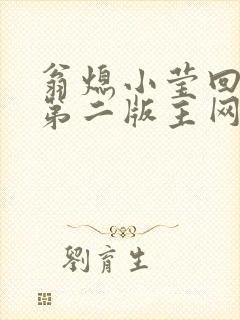 翁熄小莹回
第二版主网
劉育生